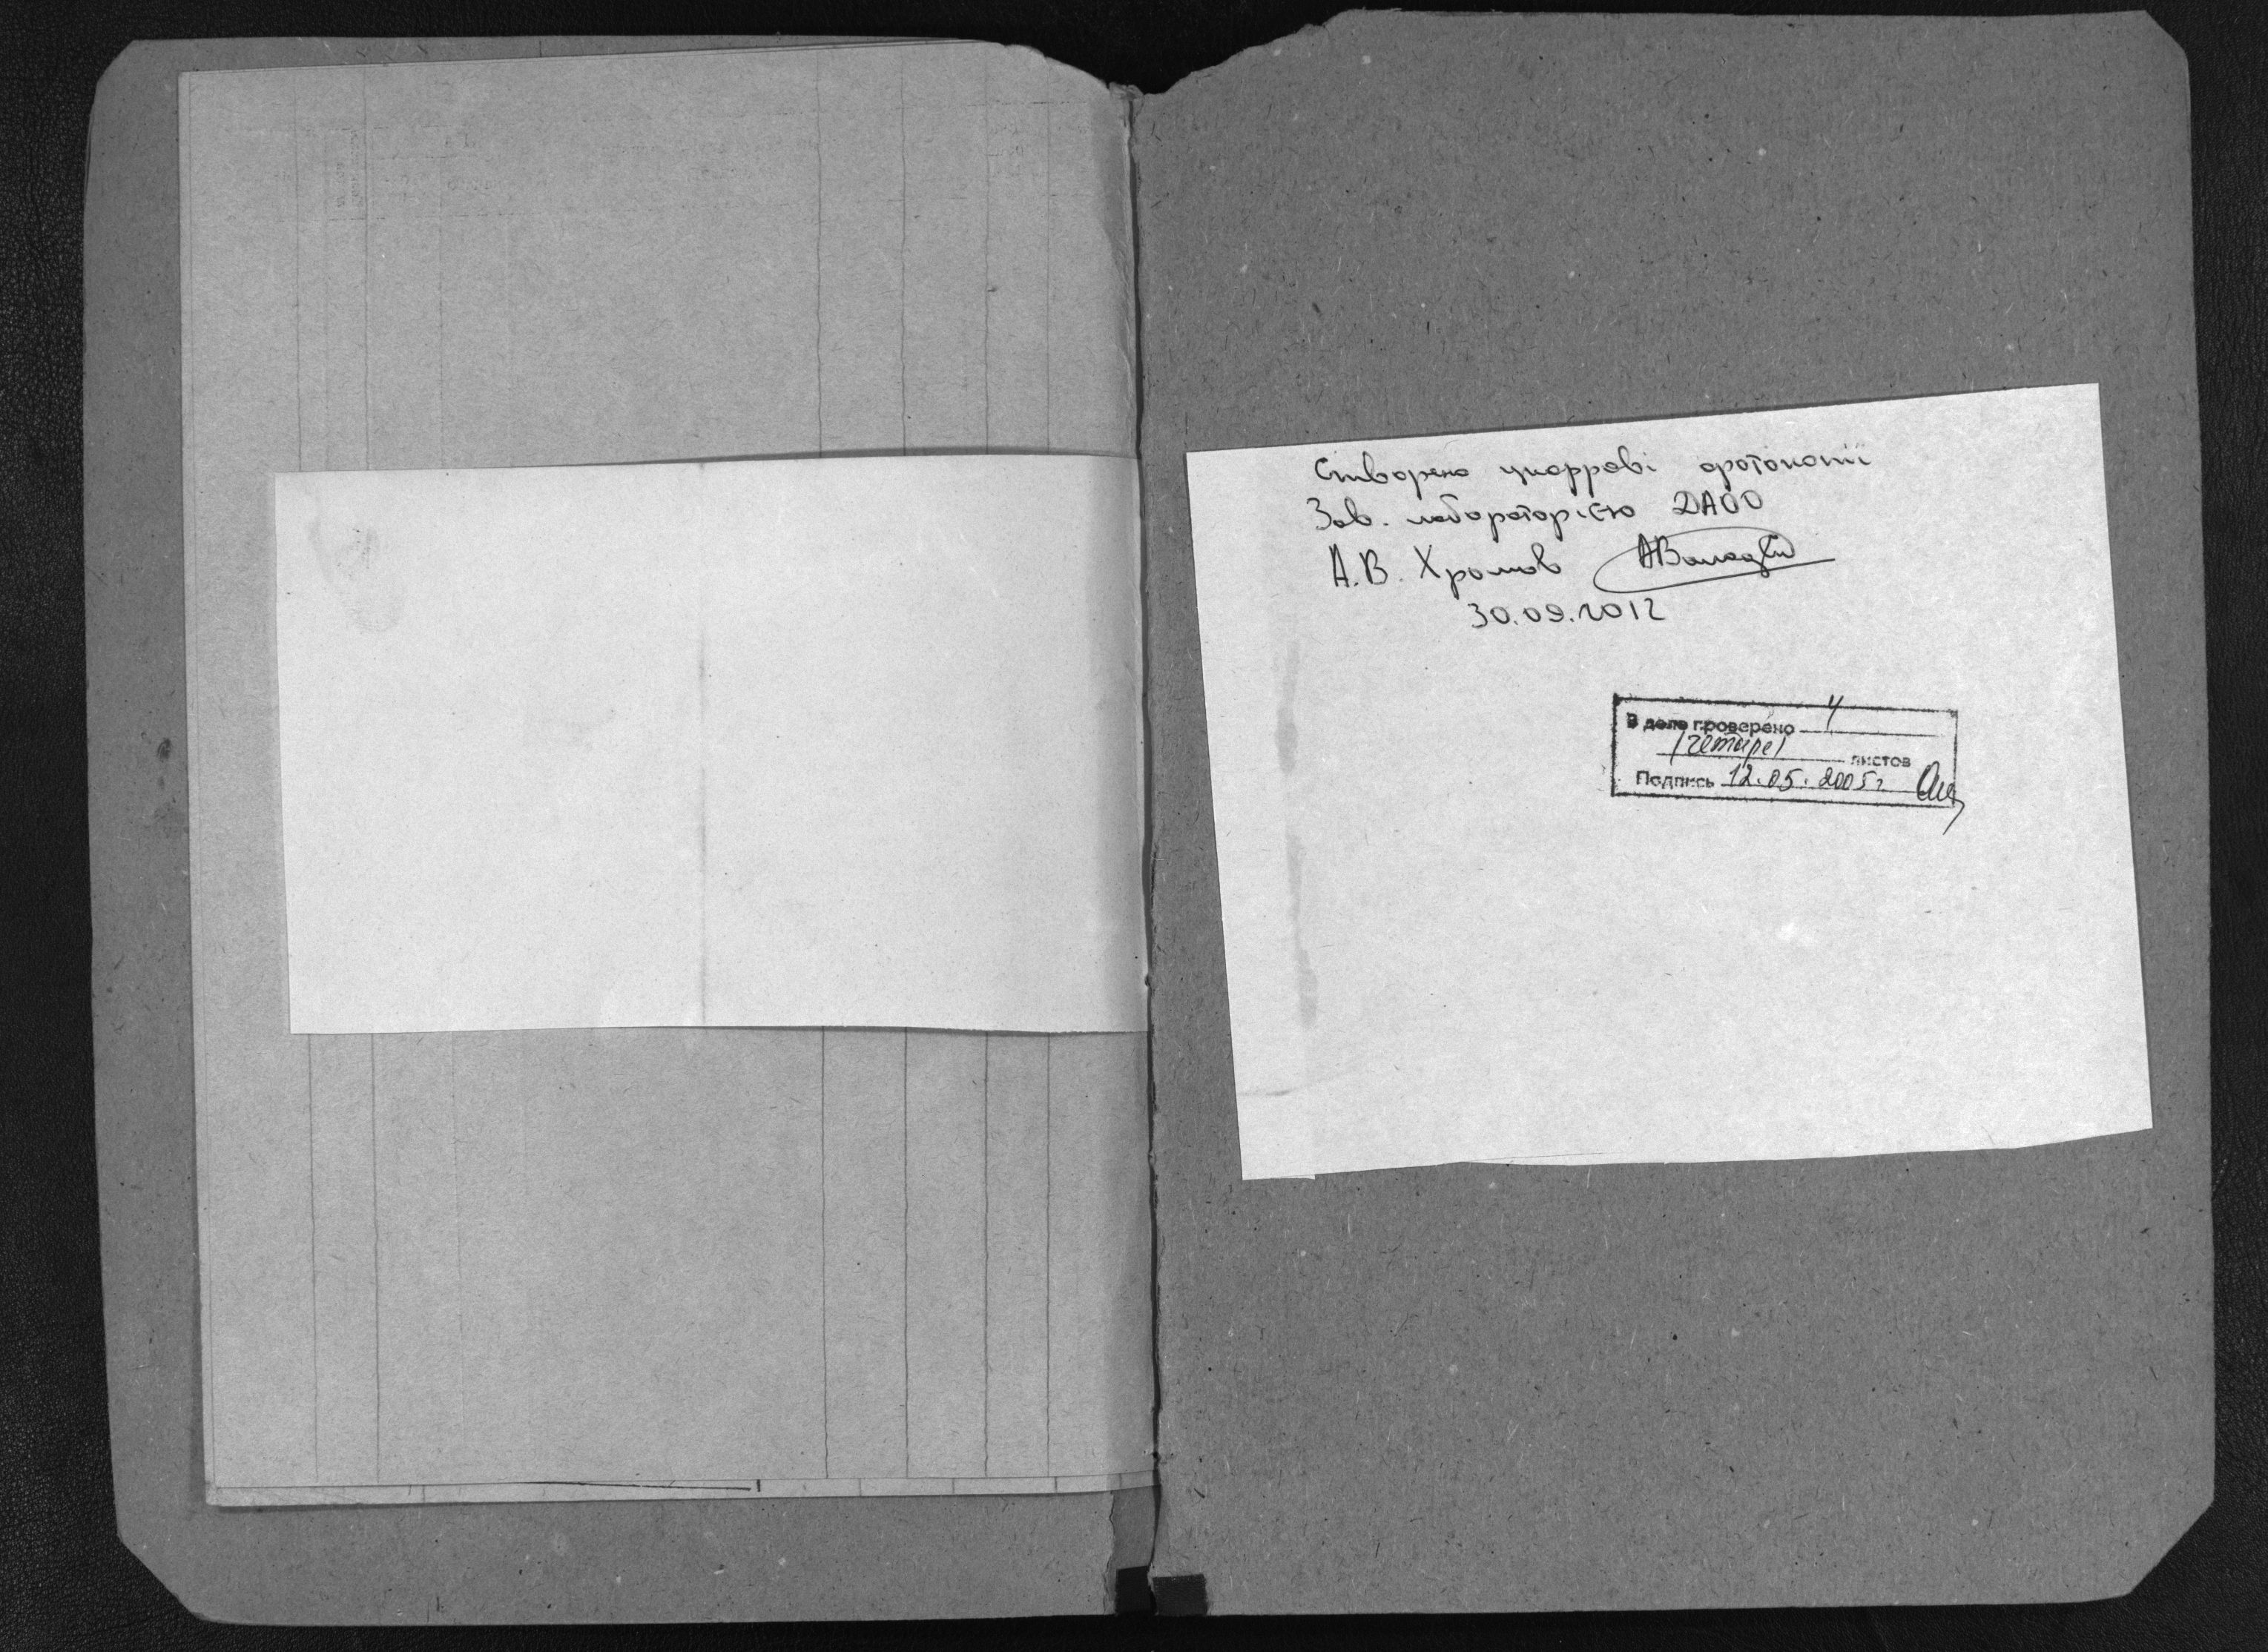 Створено цифрові фотокопії
Зав. лабораторією ДАОО
А.В. Хромов
30.09.2012
В деле проверено 4
(четыре) листов
Подпись 12.05.2005г